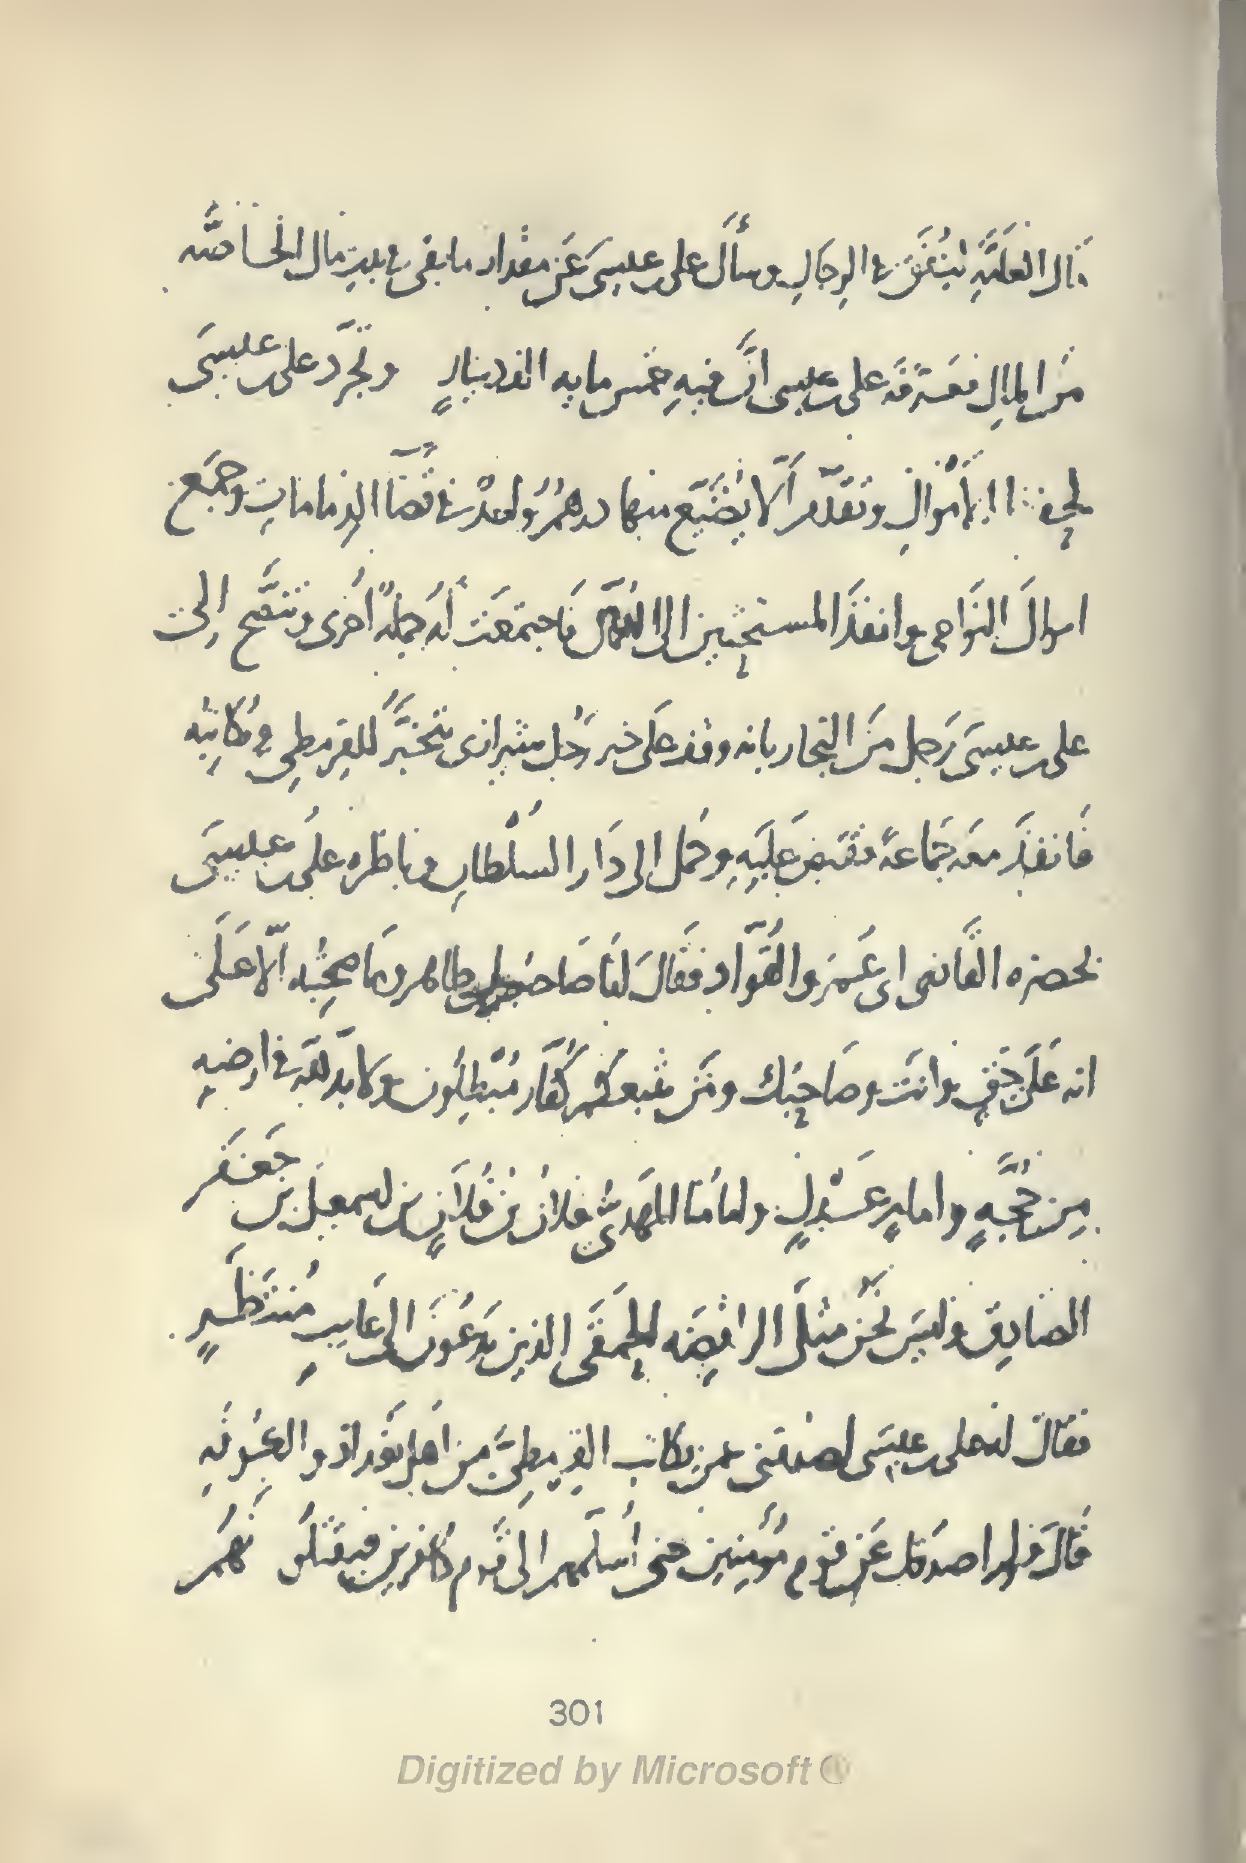 مال العلة لينفق في الرجال وسأل علي بن عيسى عن مقدار ما بقي في بيت مال الخاصة
من المال فعرفه علي بن عيسى أن فيه خمس مايه الف دينار وتجرد علي بن عيسى
لحفظ الأموال وتقدم ألا يضيع منها درهم وفي قضا الذمامات وجمع
اموال النواحي وانفذ المستحثين الى العمال فاجتمعت له جملة أخرى وتنصح إلى
علي بن عيسى رجل من التجار بانه وقف على خبر رجل شيرازي يتخبر للقرمطي ويكاتبه
فانفذ معه جماعة فقبض عليه وحمل إلى دار السلطان وناظره علي بن عيسى
بحضرة القاضي ابي عمر والقواد فقال أنا صاحب أبي طاهر وما صحبته إلا على
انه على حق وانت وصاحبك ومن يتبعكم كفار مبطلون ولا بد لله في ارضه
من حجة وامام عدل وامامنا المهدي فلان بن فلان بن اسمعيل بن جعفر
الصادق وليس نحن مثل الرافضه الحمقى الذين يدعون إلى غايب منتظر
فقال له علي بن عيسى اصدقني عمن يكاتب القرمطي من اهل بغداد والكوفه
قال ولم اصدقك عن قوم مؤمنين حتى أسلمهم الى قوم كافرين فيقتلونهم
301
Digitized by Microsoft ®